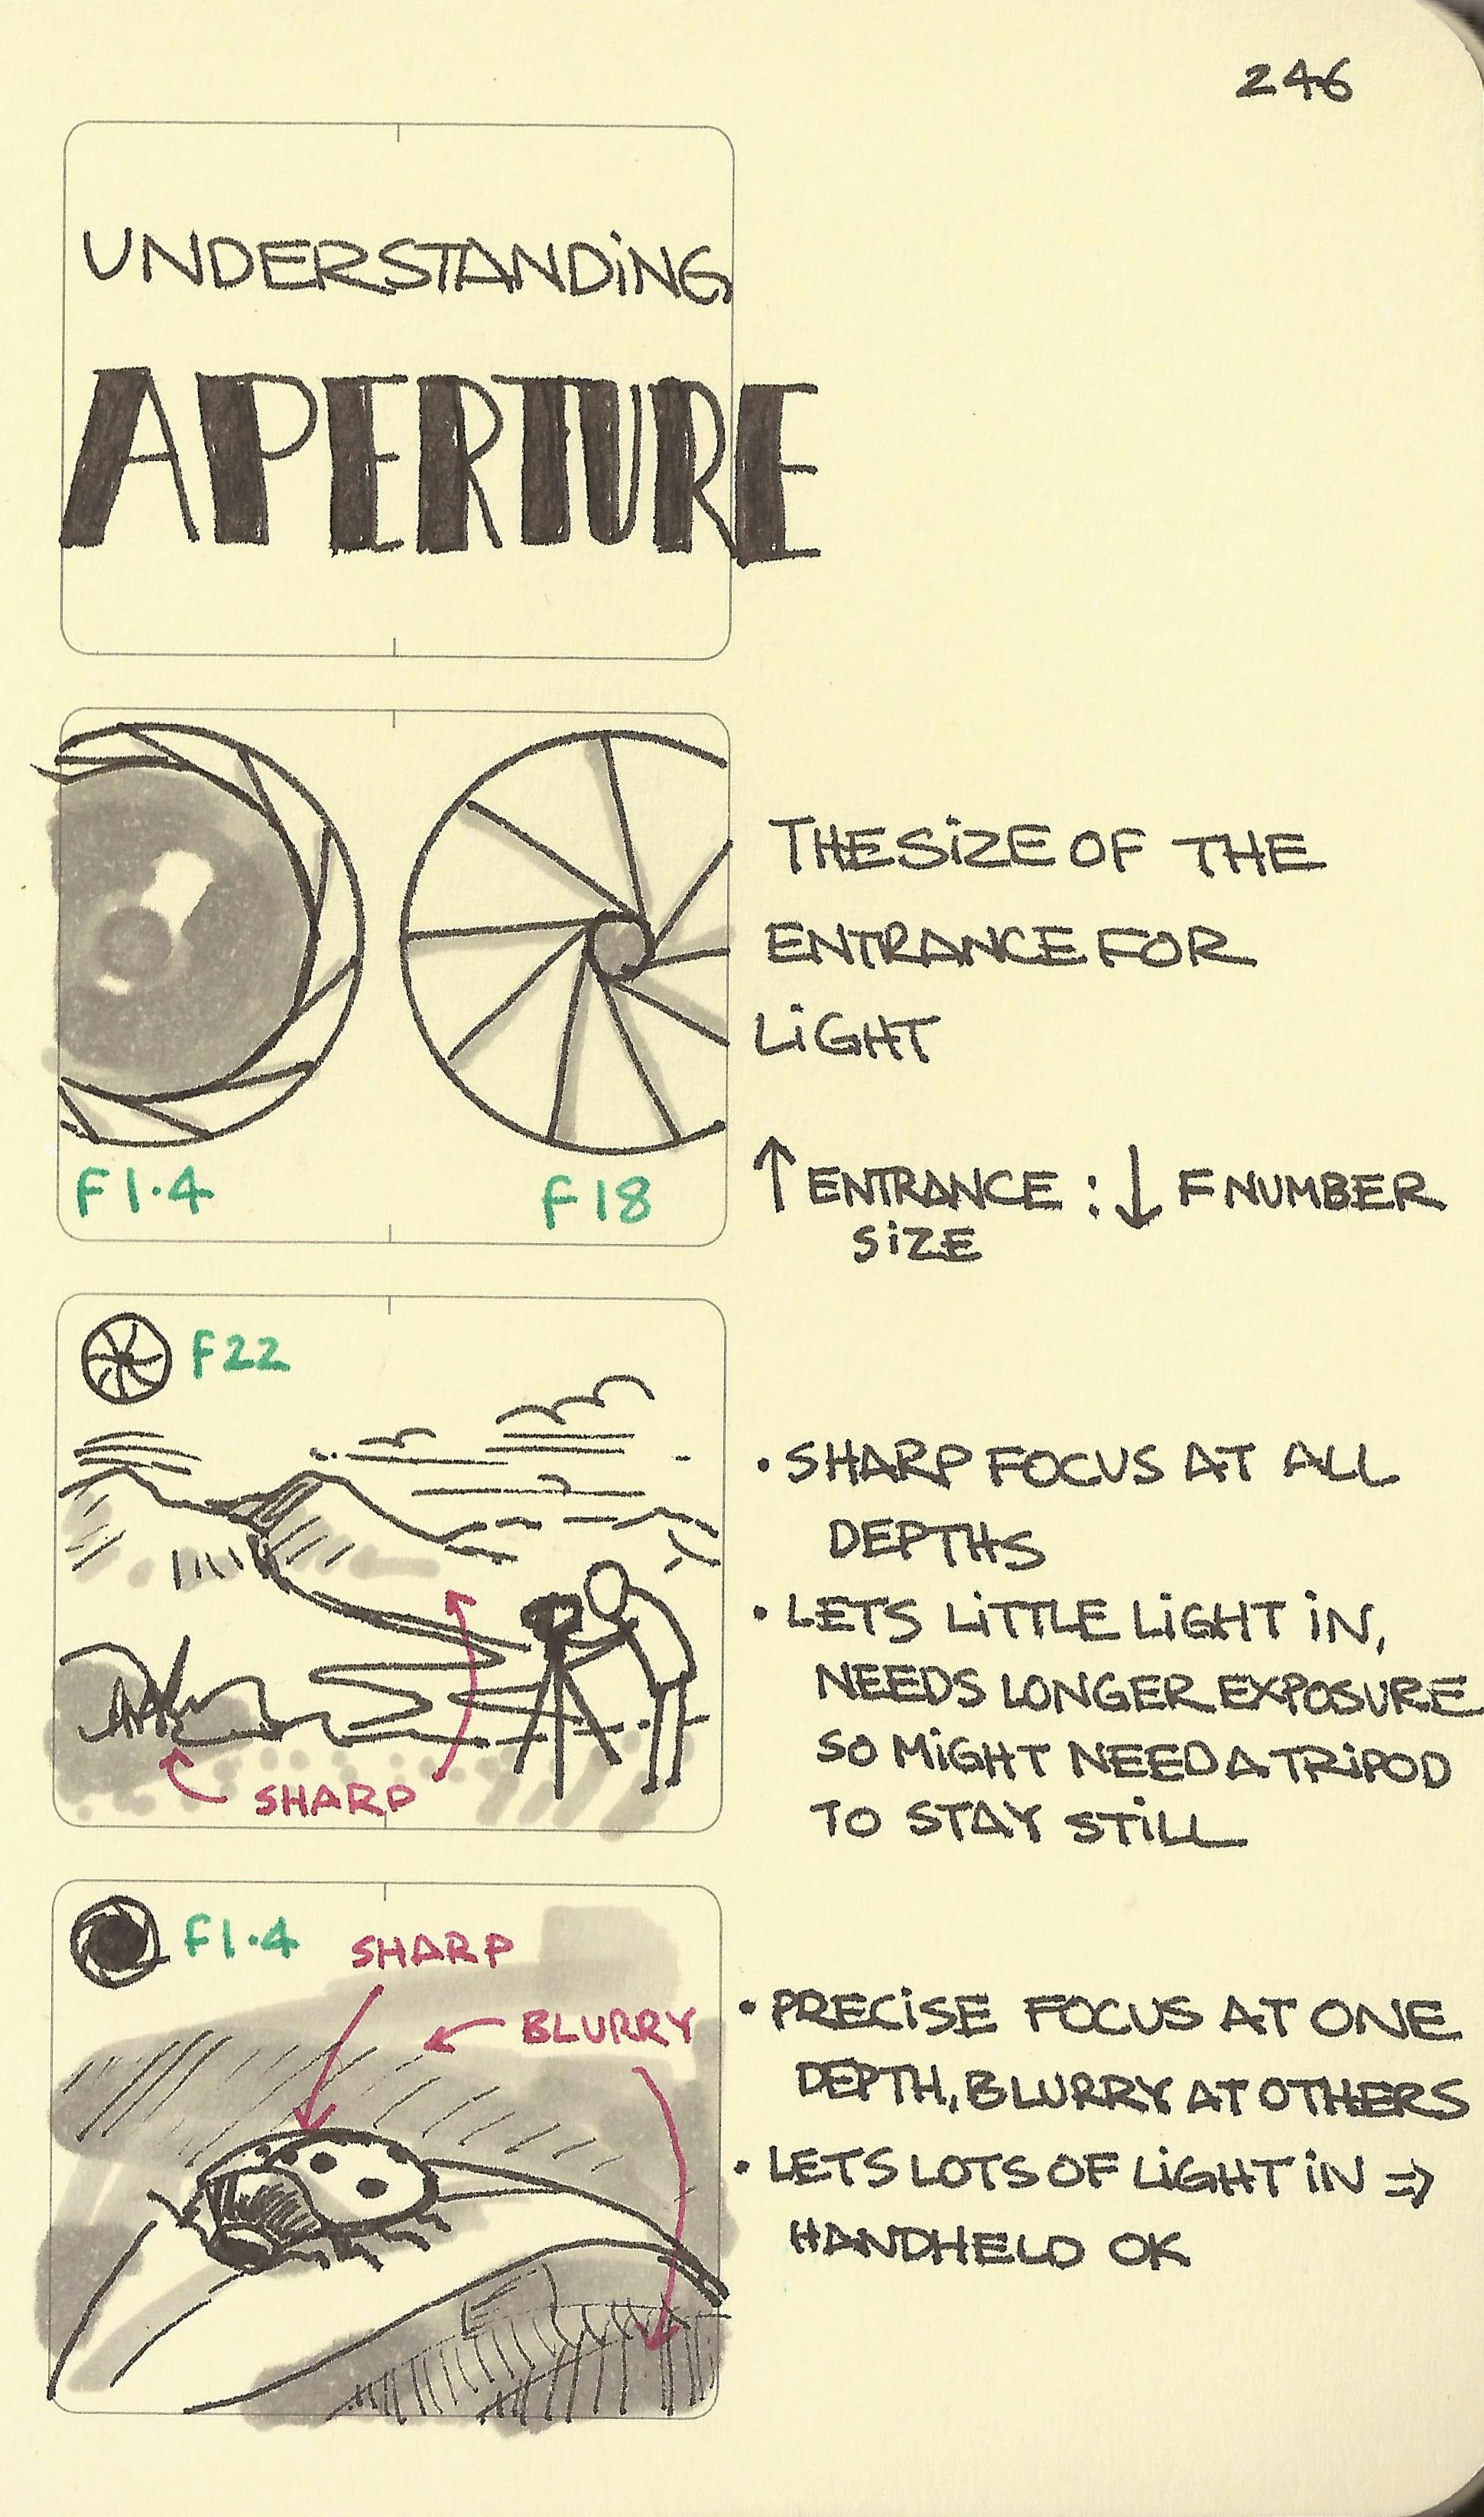 246
UNDERSTANDiNG
APERTURE
THE SiZE OF THE
ENTRANCE FOR
LiGHT
F1.4
F18
↑ ENTRANCE : ↓ F NUMBER
SiZE
F22
• SHARP FOCUS AT ALL
DEPTHS
• LETS LiTTLE LiGHT iN,
NEEDS LONGER EXPOSURE
SO MiGHT NEED A TRiPOD
TO STAY STiLL
SHARP
F1.4
SHARP
BLURRY
• PRECiSE FOCUS AT ONE
DEPTH, BLURRY AT OTHERS
• LETS LOTS OF LiGHT iN ⇒
HANDHELD OK